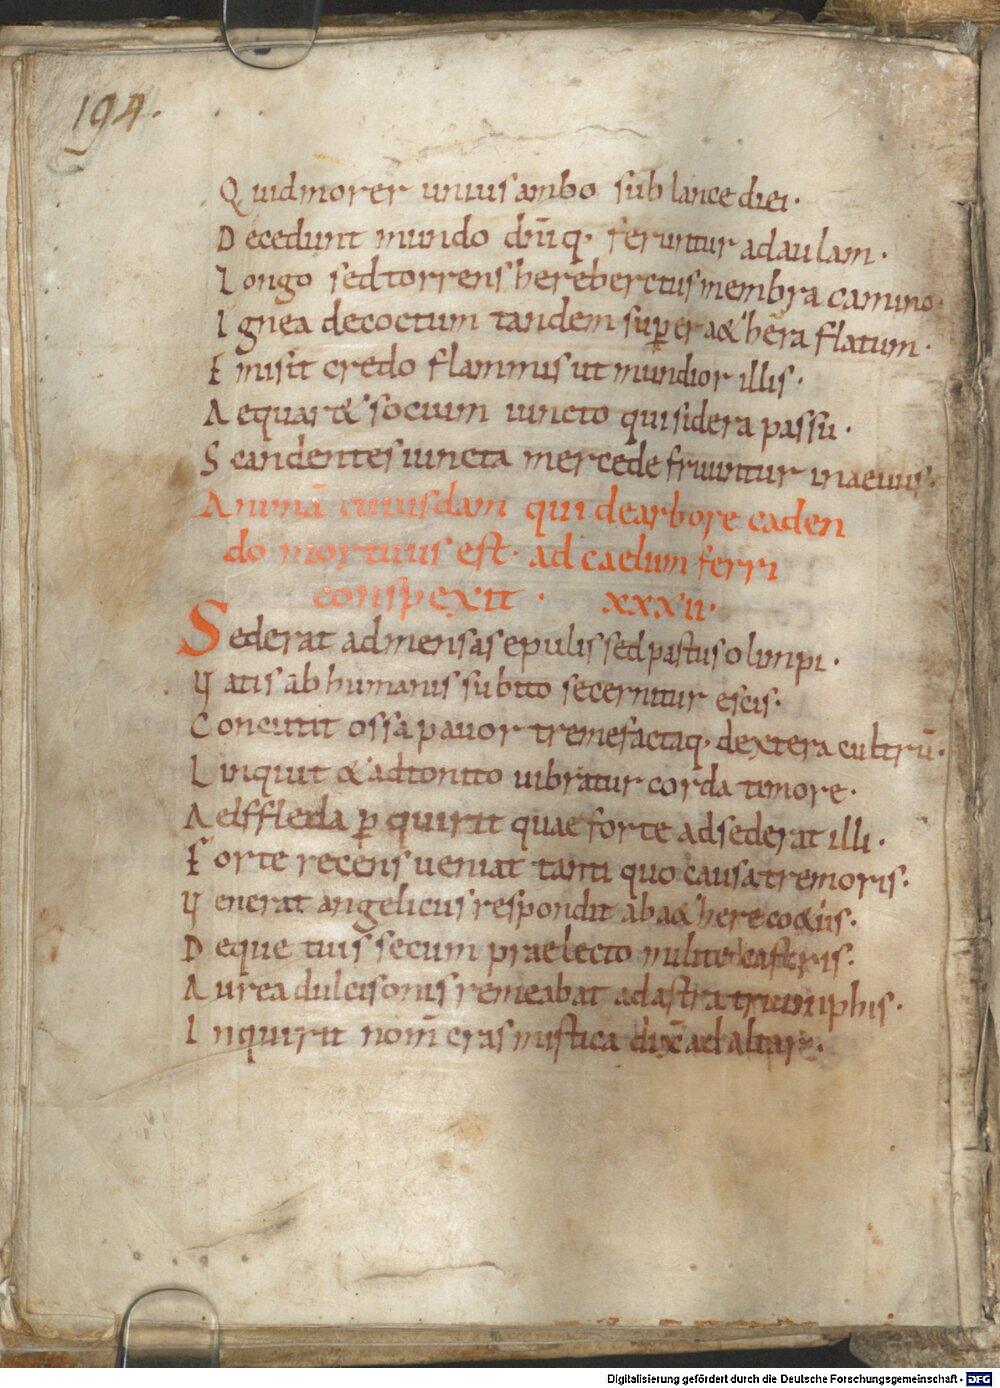 194.
Quid morer unius ambo sub lance diei.
Decedunt mundo dn̄iq. feruntur ad aulam.
Longo sed torrens hereberctus membra camino.
Ignea decoctum tandem super aethera flatum.
Emisit credo flammis ut mundior illis.
Aequaret socium iuncto qui sidera passu.
Scandentes iuncta mercede fruuntur in aeuum.
Animā cuiusdam qui de arbore caden
do mortuus est. ad caelum ferri
conspexit. xxxii.
Sederat ad mensas epulis sed pastus olimpi.
Uatis ab humanis subito secernitur escis.
Concutit ossa pauor tremefactaq. dextera cultrū.
Linquit & adtonito uibratur corda timore.
Aelffleda ꝑquirit quae forte adsederat illi.
Forte recens ueniat tanti quo causa tremoris.
Uenerat angelicus respondit ab aethere coetus.
Deque tuis secum praelecto milite castris.
Aurea dulcisonis remeabat ad astra triumphis.
Inquirit nom̄ cras mistica dix̄ ad altar
Digitalisierung gefördert durch die Deutsche Forschungsgemeinschaft - DFG